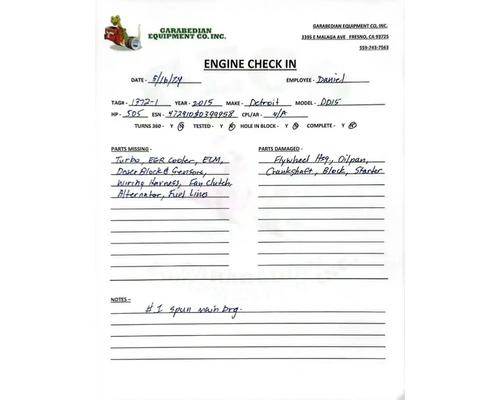 GARABEDIAN
EQUIPMENT CO. INC.
GARABEDIAN EQUIPMENT CO, INC.
3395 E MALAGA AVE FRESNO, CA 93725
559-743-7563
ENGINE CHECK IN
DATE - 5/16/24 EMPLOYEE - Daniel
TAG# - 1372-1 YEAR - 2015 MAKE - Detroit MODEL - DD15
HP - 505 ESN - 472910S0399958 CPL/AR - N/A
TURNS 360 - Y N TESTED - Y N HOLE IN BLOCK - Y N COMPLETE - Y N
PARTS MISSING -
Turbo, EGR Cooler, ECM,
Doser Block & Sensors,
Wiring Harness, Fan Clutch
Alternator, Fuel Lines
PARTS DAMAGED -
Flywheel Hsg, Oilpan,
Crankshaft, Block, Starter
NOTES -
#1 spun main brg.